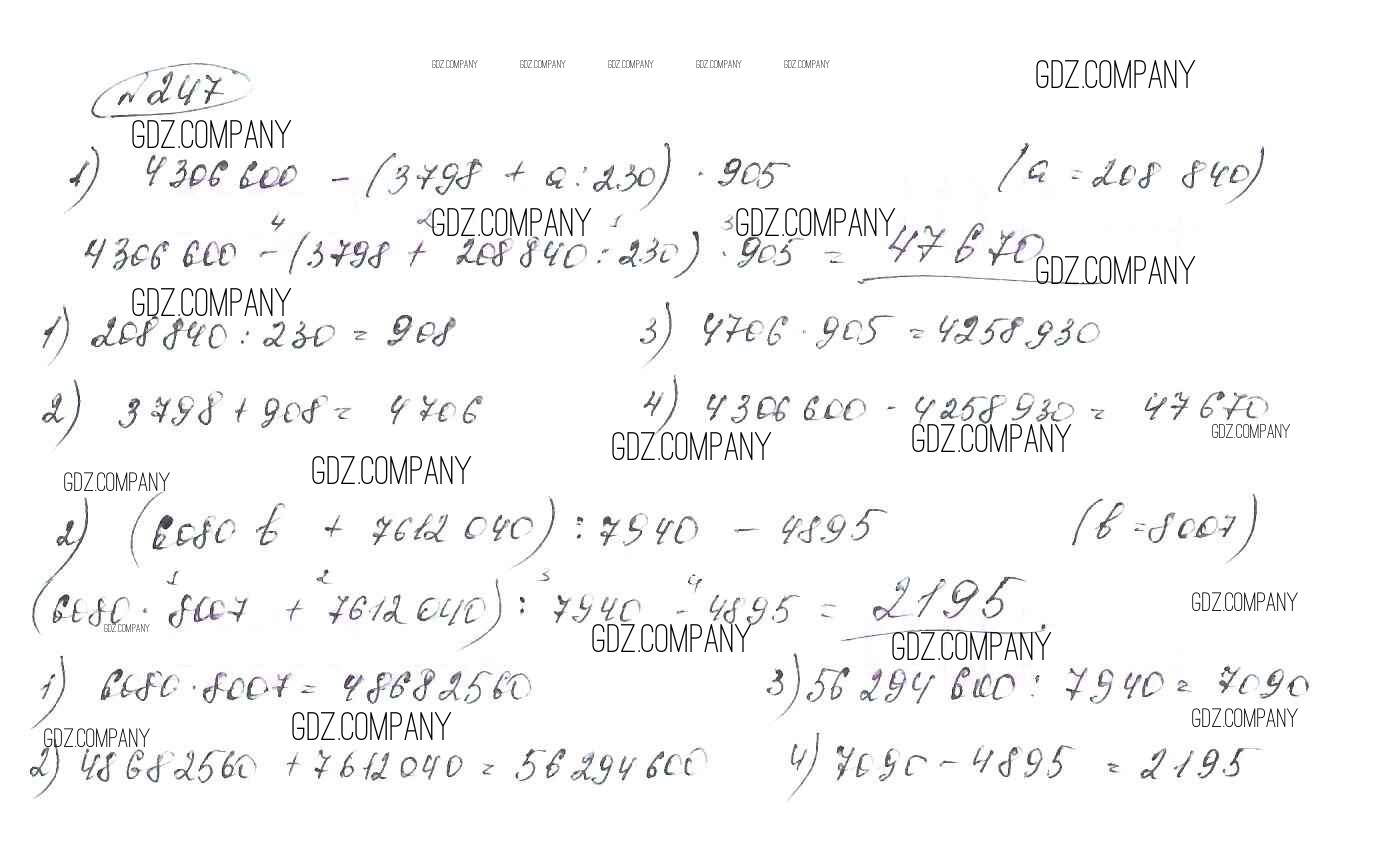 GDZ.COMPANY GDZ.COMPANY GDZ.COMPANY GDZ.COMPANY GDZ.COMPANY
GDZ.COMPANY
№ 247
GDZ.COMPANY
1) 4306 600 - (3798 + a : 230) · 905 (a = 208 840)
GDZ.COMPANY GDZ.COMPANY
4 2 1 3
4306 600 - (3798 + 208 840 : 230) · 905 = 47670
GDZ.COMPANY
GDZ.COMPANY
1) 208 840 : 230 = 908 3) 4706 · 905 = 4258930
2) 3798 + 908 = 4706 4) 4306 600 - 4258 930 = 47670
GDZ.COMPANY GDZ.COMPANY GDZ.COMPANY
GDZ.COMPANY GDZ.COMPANY
2) (6080 b + 7612 040) : 7940 - 4895 (b = 8007)
1 2 3 4
(6080 · 8007 + 7612 040) : 7940 - 4895 = 2195.
GDZ.COMPANY
GDZ.COMPANY GDZ.COMPANY GDZ.COMPANY
1) 6080 · 8007 = 48682560 3) 56 294 600 : 7940 = 7090
GDZ.COMPANY GDZ.COMPANY GDZ.COMPANY
2) 48682560 + 7612040 = 56294600 4) 7090 - 4895 = 2195